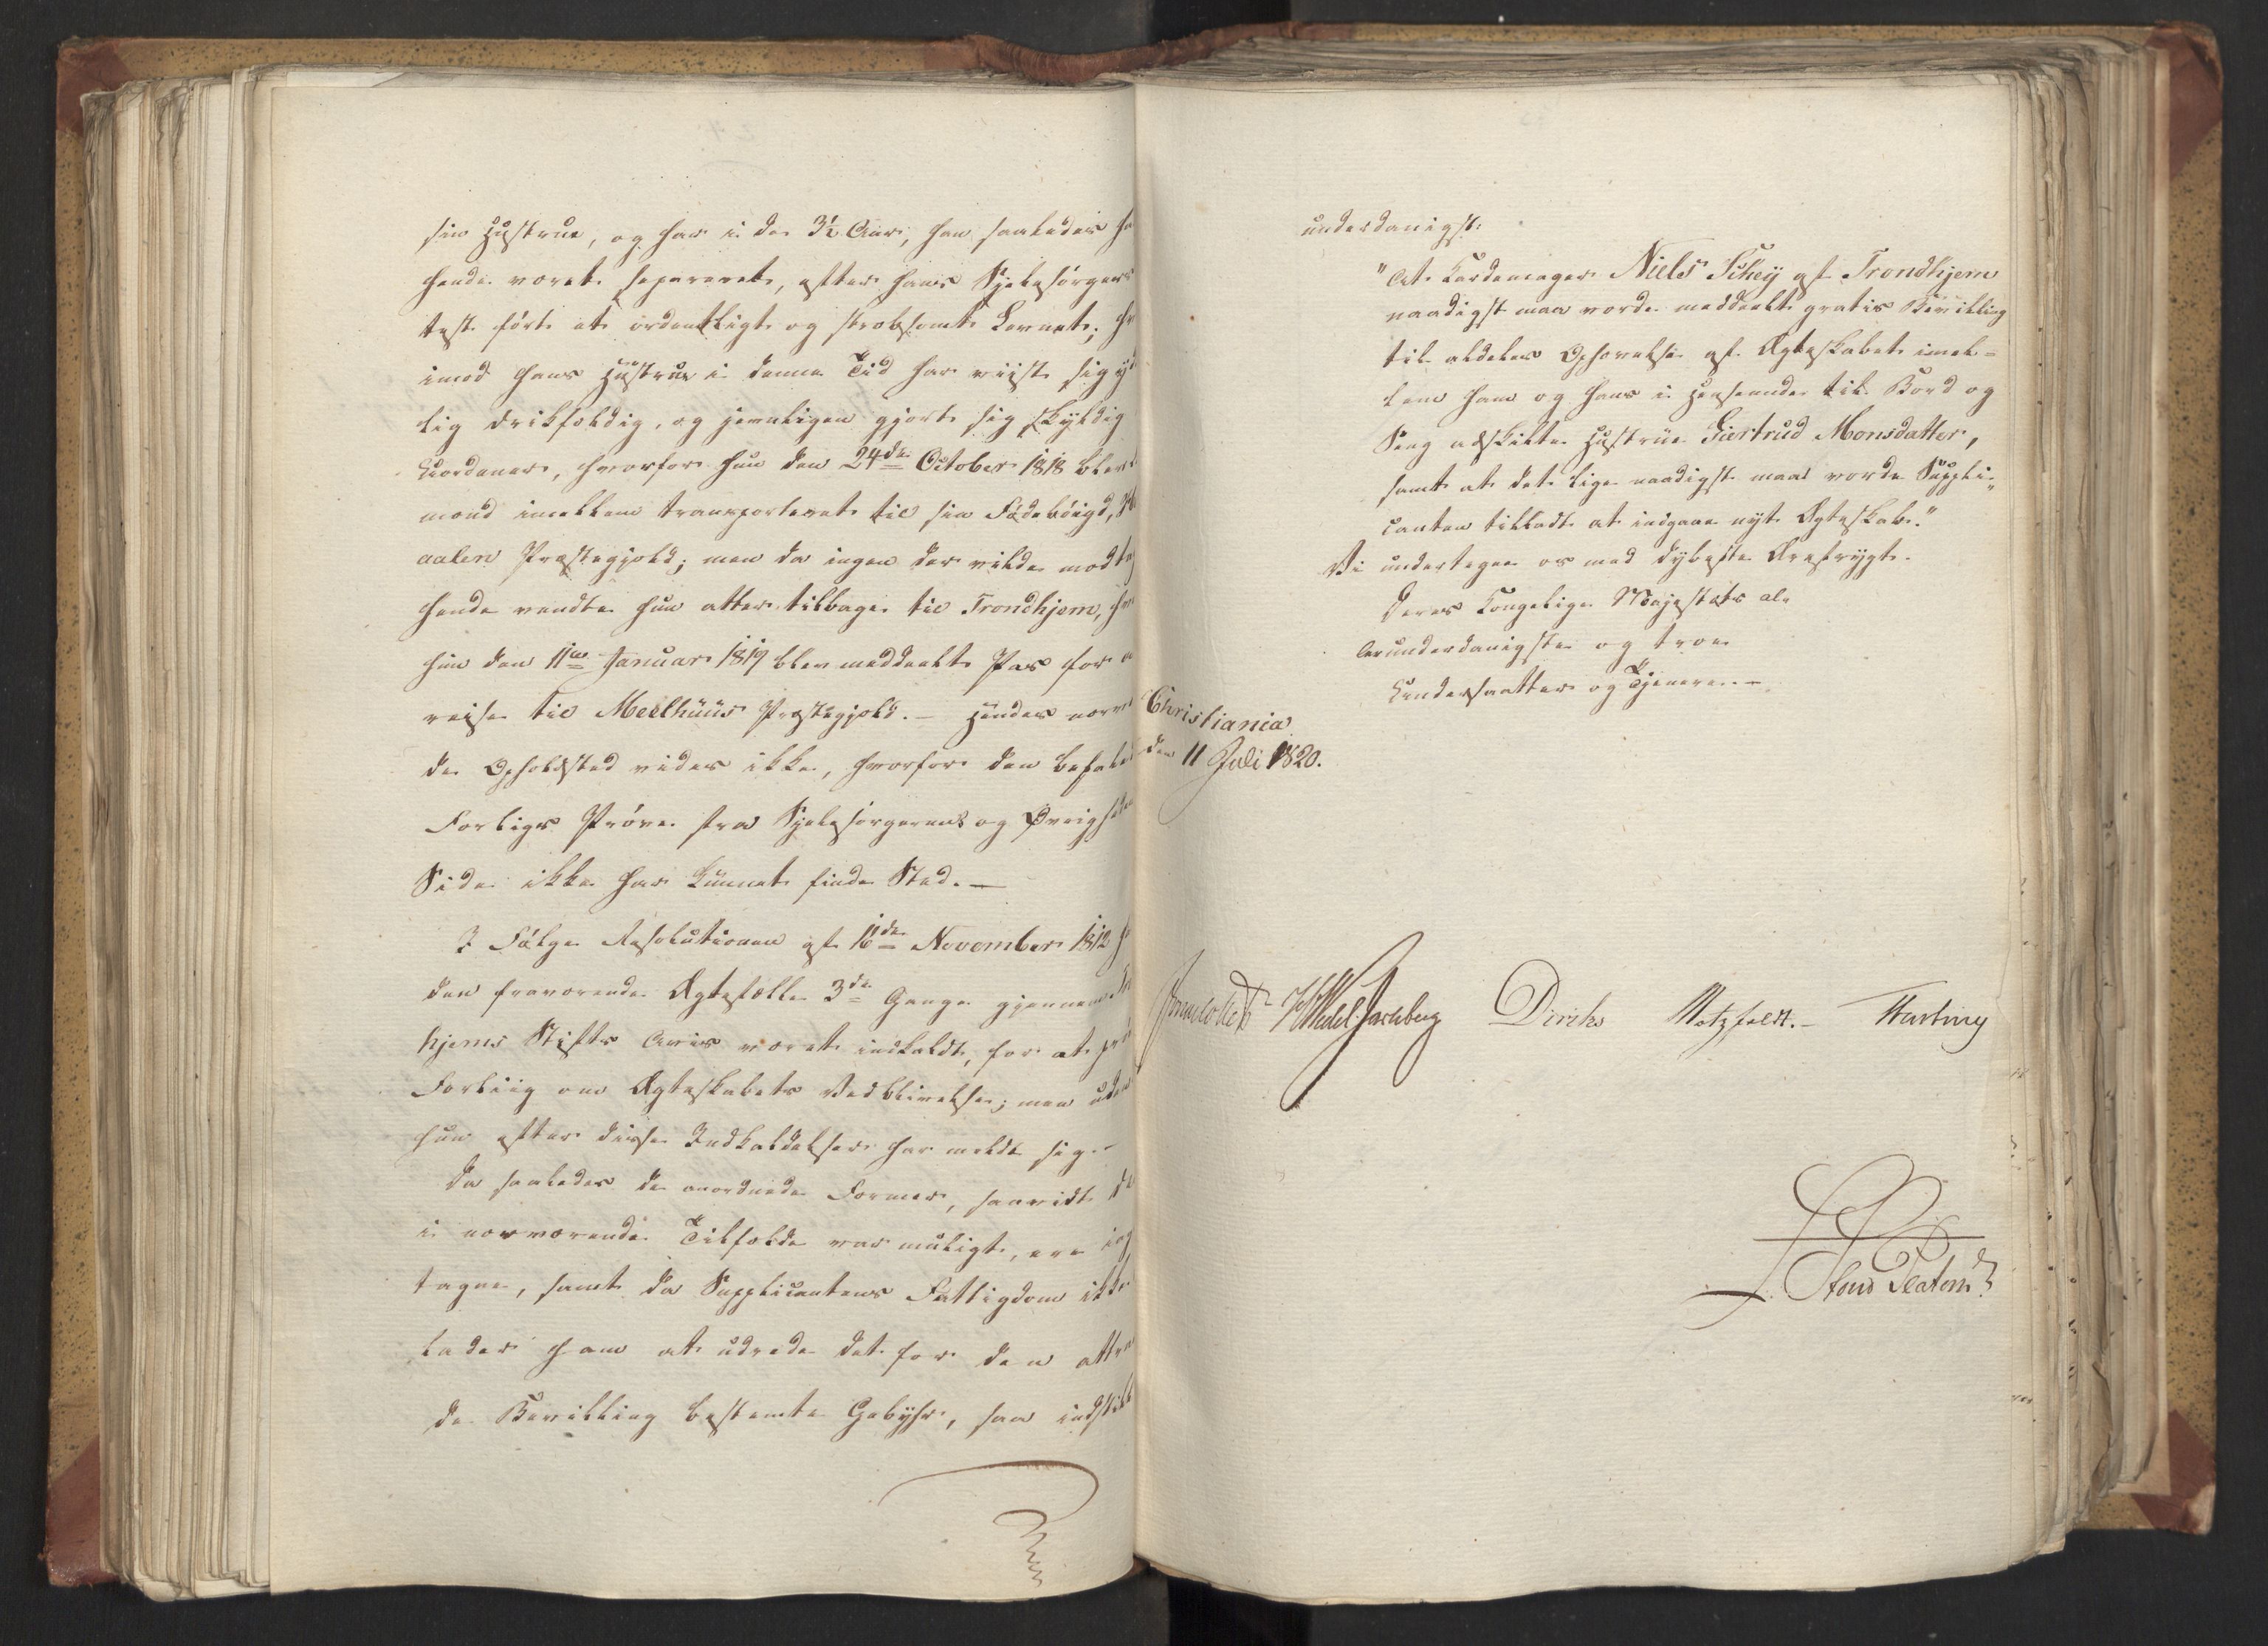 sin Hustrue, og har i de 3½ Aar, han saaledes fra
hende været separeret, efter hans Sjelesørgers
test ført et ordentligt og strebsomt Levnet;
imod hans Hustrue i denne Tid har viist sig
lig drikfældig, og jevnligen gjort sig skyldig
Uordener, hvorfor hun den 24de October 1818 blev
mand imellem transporteret til sin Fødebøigd,
aalen Præstegjeld; men da ingen der vilde modtag
hende vendte hun atter tilbage til Trondhjem,
hun den 11te Januar 1819 blev meddeelt Pas for a
reise til Meelhuus Præstegjeld. – Hendes nærv
de Opholdsted vides ikke, hvorfor den befalede
Forligs Prøve fra Sjelesørgerens og Øvrigheden
Side ikke har kunnet finde Sted. –
I Følge Resolutionen af 16de November 1812
den fraværende Ægtefælle 3de Gange gjennem
hjems Stifts Avis været indkaldt, for at prø
Forliig om Ægteskabets Vedblivelse; men uden
hun efter disse Indkaldelser har meldt sig. –
Da saaledes de anordnede Former, saavidt
i nærværende Tilfælde var muligt, ere iag
tagne, samt da Supplicantens Fattigdom ikke
lader ham at udrede det for den attra
de Bevilling bestemte Gebyhr, saa indstill
underdanigst:
"At Kardemager Niels Schey af Trondhjem
naadigst maa vorde meddeelt gratis Bevilling
til aldeles Ophævelse af Ægteskabet imel=
lem ham og hans i Henseende til Bord og
Seng adskilte Hustrue Giertrud Monsdatter,
samt at det lige naadigst maa vorde Suppli=
canten tilladt at indgaae nyt Ægteskab."
Vi undertegne os med dybeste Ærefrygt.
Deres Kongelige Majestæts al=
lerunderdanigste og troe
Undersaatter og Tjenere. –
Christiania
den 11 Juli 1820.
Sommerhielm HWedel Jarlsberg Diriks Motzfeldt. – Harbing